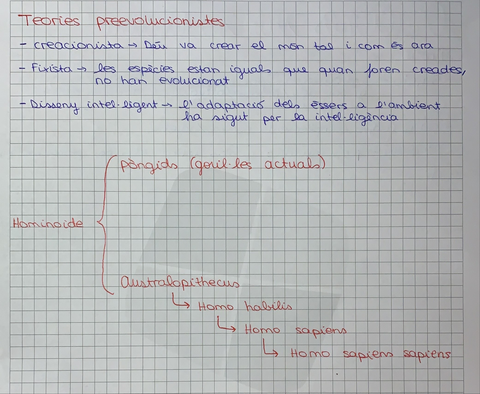 Teories preevolucionistes
- creacionista → Déu va crear el món tal i com és ara
- Fixista → les espècies estan iguals que quan foren creades,
no han evolucionat
- Disseny intel·ligent → l'adaptació dels éssers a l'ambient
ha sigut per la intel·ligència
Pòngids (goril·les actuals)
Hominoide
Australopithecus
↳ Homo habilis
↳ Homo sapiens
↳ Homo sapiens sapiens